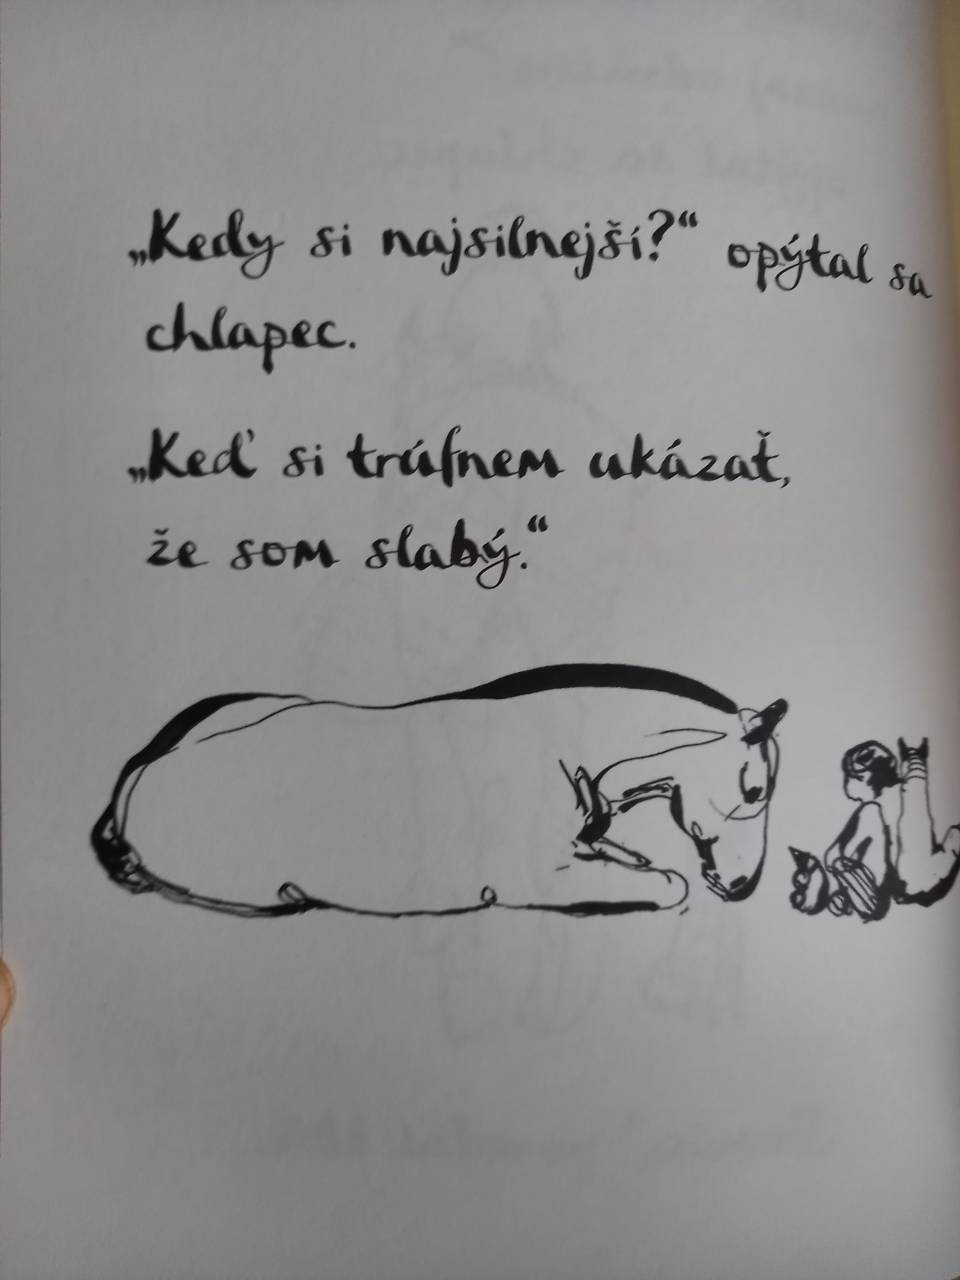 „Kedy si najsilnejší?“ opýtal sa
chlapec.
„Keď si trúfnem ukázať,
že som slabý.“